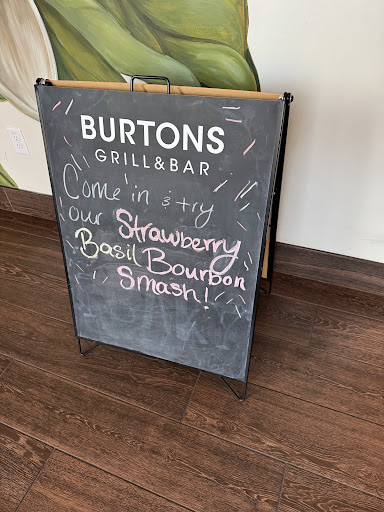 BURTONS
GRILL & BAR
Come in & try
our Strawberry
Basil Bourbon
Smash!